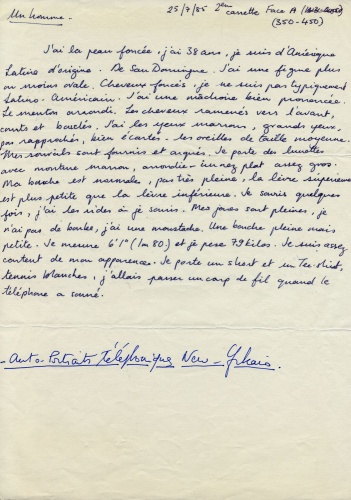 Un homme.
25/7/85 2ème cassette Face A
(350-450)
J'ai la peau foncée, j'ai 38 ans, je suis d'Amérique
Latine d'origine. De San Domingue. J'ai une figure plus
ou moins ovale. Cheveux foncés, je ne suis pas typiquement
Latino-Américain. J'ai une mâchoire bien prononcée.
Le menton arrondi. Les cheveux ramenés vers l'avant,
courts et bouclés. J'ai les yeux marrons, grands yeux,
pas rapprochés, bien écartés. les oreilles de taille moyenne.
Mes sourcils sont fournis et arqués. Je porte des lunettes
avec monture marron, arrondie - un nez plat assez gros.
Ma bouche est normale, pas très pleine, la lèvre supérieure
est plus petite que la lèvre inférieure. Je souris quelques
fois, j'ai les rides si je souris. Mes joues sont pleines, je
n'ai pas de barbe, j'ai une moustache. Une bouche pleine mais
petite. Je mesure 6'1" (1m80) et je pèse 79 kilos. Je suis assez
content de mon apparence. Je porte un short et un Tee-shirt,
tennis blanches, j'allais passer un coup de fil quand le
téléphone a sonné.
- Auto-Portraits Téléphonique New-Yorkais.